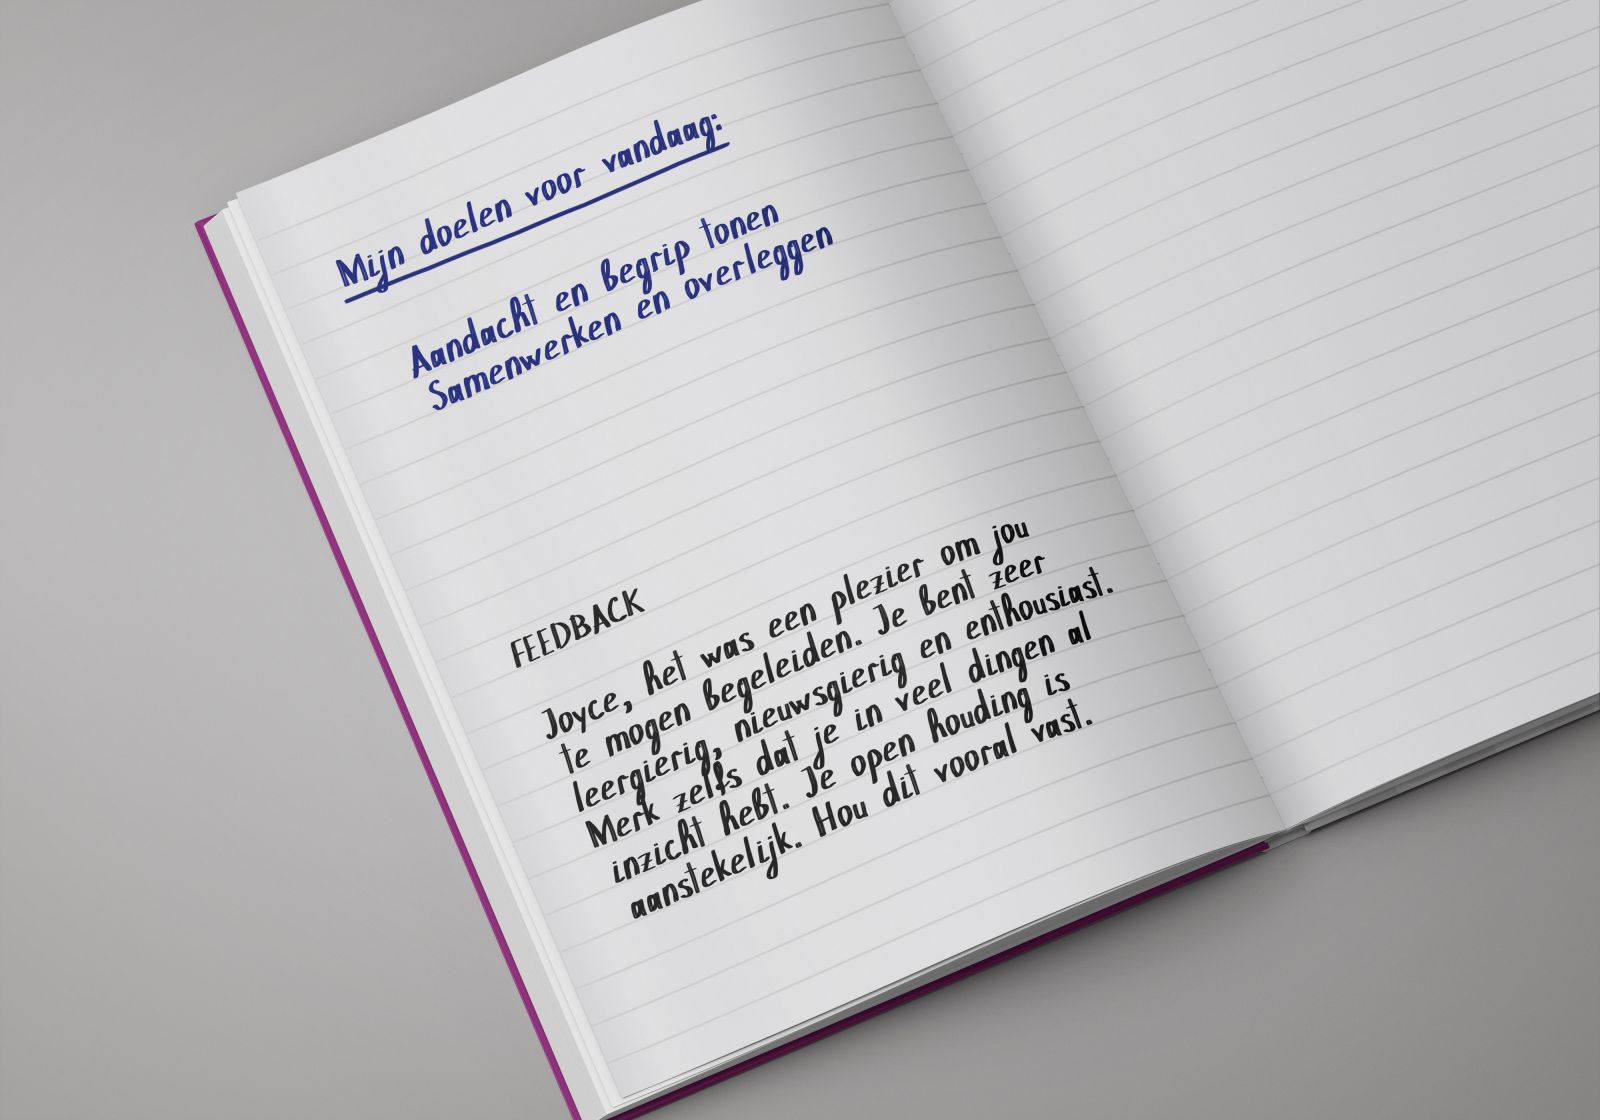 Mijn doelen voor vandaag:
Aandacht en begrip tonen
Samenwerken en overleggen
FEEDBACK
Joyce, het was een plezier om jou
te mogen begeleiden. Je bent zeer
leergierig, nieuwsgierig en enthousiast.
Merk zelfs dat je in veel dingen al
inzicht hebt. Je open houding is
aanstekelijk. Hou dit vooral vast.